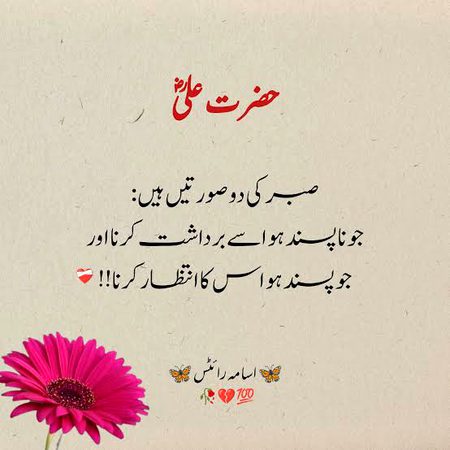 حضرت علیؓ
صبر کی دو صورتیں ہیں:
جو ناپسند ہو اسے برداشت کرنا اور
جو پسند ہو اس کا انتظار کرنا!! ❤️‍🩹
🦋 اسامہ رائٹس 🦋
🥀💔💯